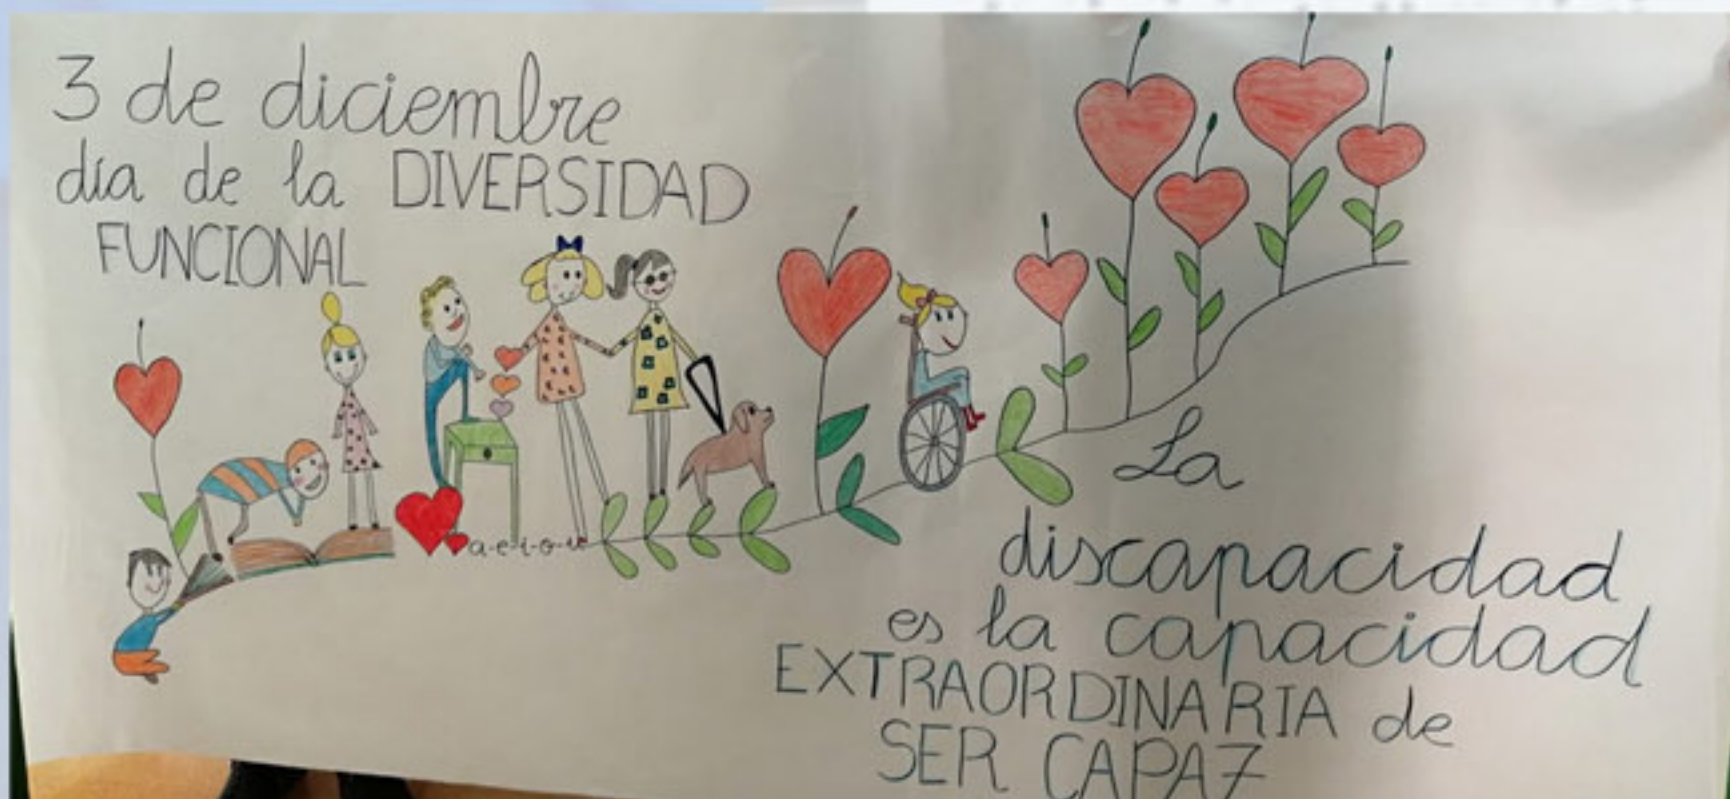 3 de diciembre
día de la DIVERSIDAD
FUNCIONAL
a-e-i-o-u
La
discapacidad
es la capacidad
EXTRAORDINARIA de
SER CAPAZ